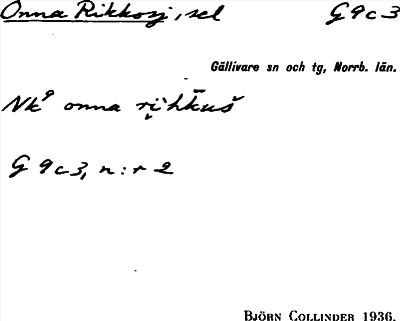 Onna Rikkosj, sel G9c3
Gällivare sn och tg, Norrb. län.
onna
G 9c3, n:r 2
BJÖRN COLLINDER 1936.